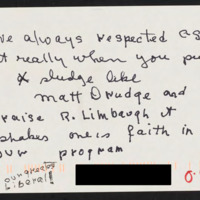 always respected
t really when you pu
& sludge like
Matt Drudge and
raise R. Limbaugh it
shakes one's faith in
your program
liberal!